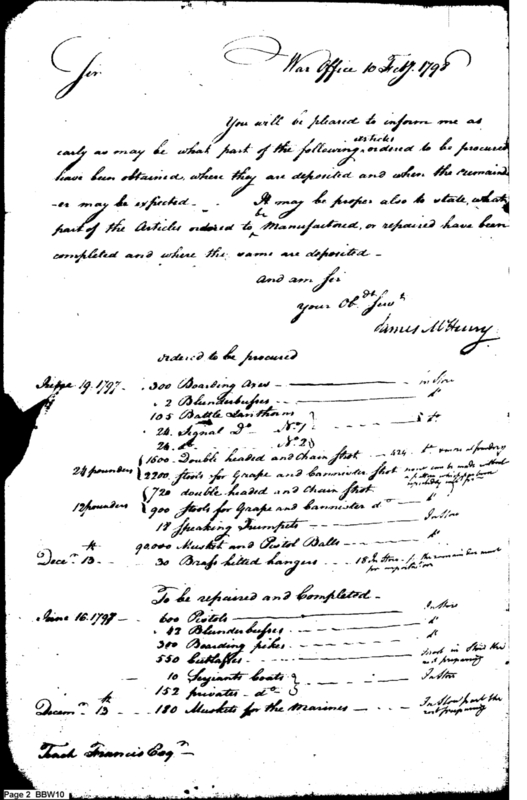 War Office 10 Feby. 1798
Sir
You will be pleased to inform me as
early as may be what part of the following articles ordered to be procured
have been obtained, where they are deposited and when the remaind
-er may be expected - It may be proper also to state, what
part of the Articles ordered to be Manufactored, or repaired have been
completed and where the same are deposited -
and am Sir
your Obdt Servt
James McHenry
ordered to be procured
19. 1797 - 300 Boarding Axes - in Store
2 Blunderbusses - do
105 Battle Lanthorns
24. Signal Do - No. 1 do
24. do - No. 2
1600. Double headed and Chain Shot - 424 do
24 pounders 2200. Stools for Grape and Cannister Shot
720 double headed and Chain Shot
12 pounders 900 Stools for Grape and Cannister do do
18 Speaking Trumpets - In Store
90,000 Musket and Pistol Balls - do
Decem 13 - 30 Brass hilted hangers - 18 In Store the remainder must
for importation
To be repaired and Completed -
June 16. 1797 - 600 Pistols - In Store
42 Blunderbusses - do
300 Boarding pikes - do
550 Cutlasses - in Store the
rest preparing
10 Serjeants Coats In Store
152 privates do
Decem 13 - 180 Muskets for the Marines - In Store part the
rest preparing
Tench Francis Esqr
Page 2 BBW10